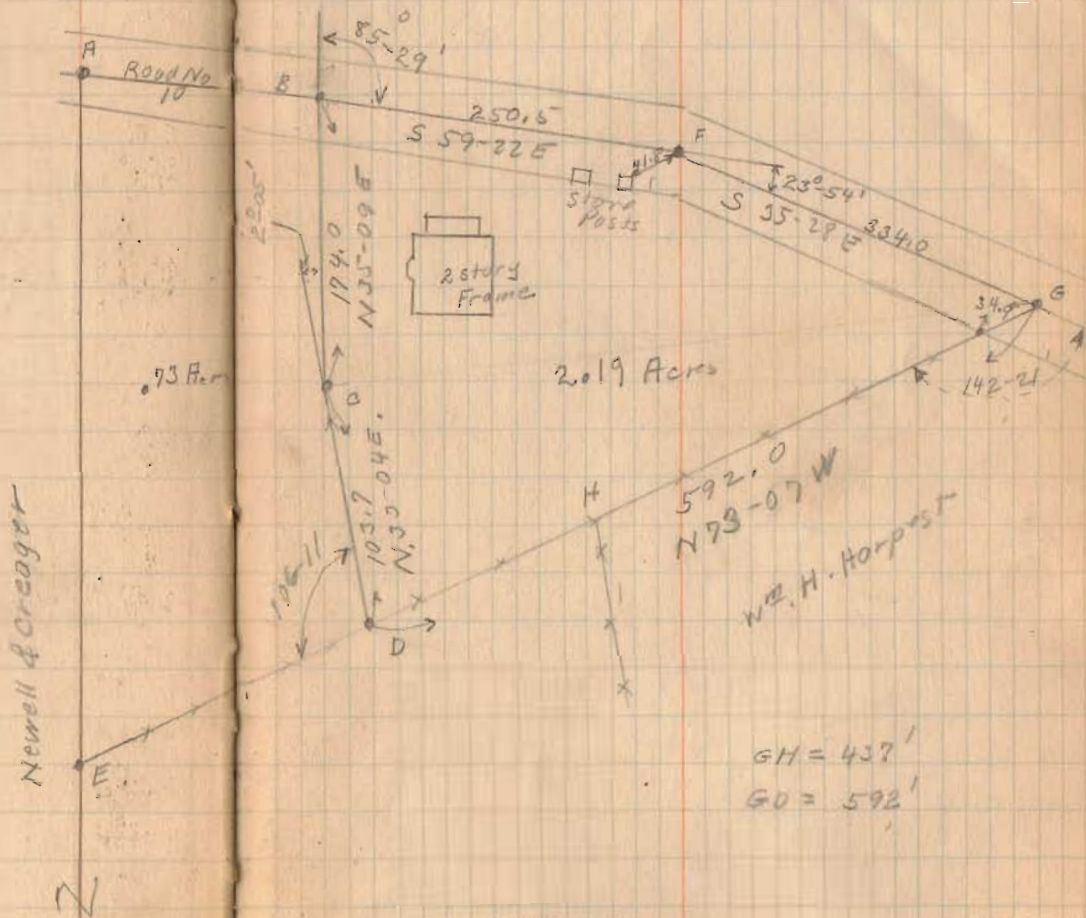 A
Road No
10
B
85°-29'
250.5
S 59-22 E
F
23°-54'
S 35-28 E
334.0
G
34.5
A
142-21
41.8
Stone
Posts
2°05'
174.0
N 35-09 E
2 story
Frame
.73 Acre
2.19 Acres
C
103.7
N.33-04E.
106-11
D
H
592.0
N 73-07 W
Wm. H. Harpest
Newell & Creager
E
GH = 437'
GD = 592'